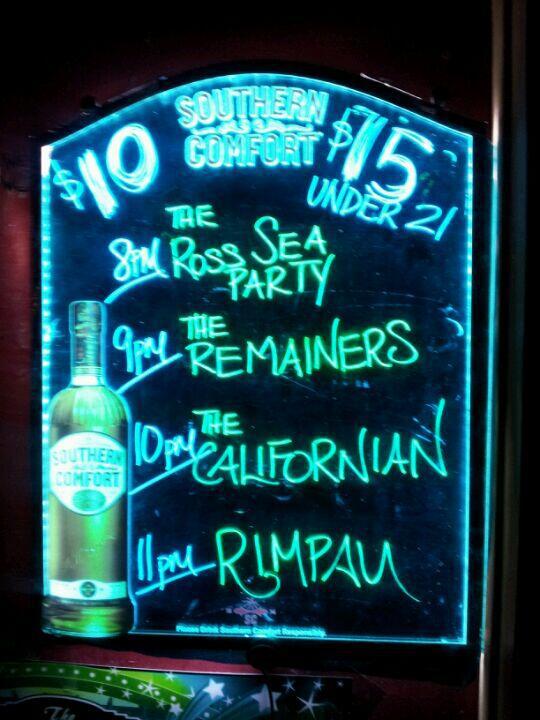 SOUTHERN
COMFORT
$10 $15
UNDER 21
8PM THE
ROSS SEA
PARTY
9PM THE
REMAINERS
10PM THE
CALIFORNIAN
11PM RIMPAU
SOUTHERN
COMFORT
SC
Please Drink Southern Comfort Responsibly.
The